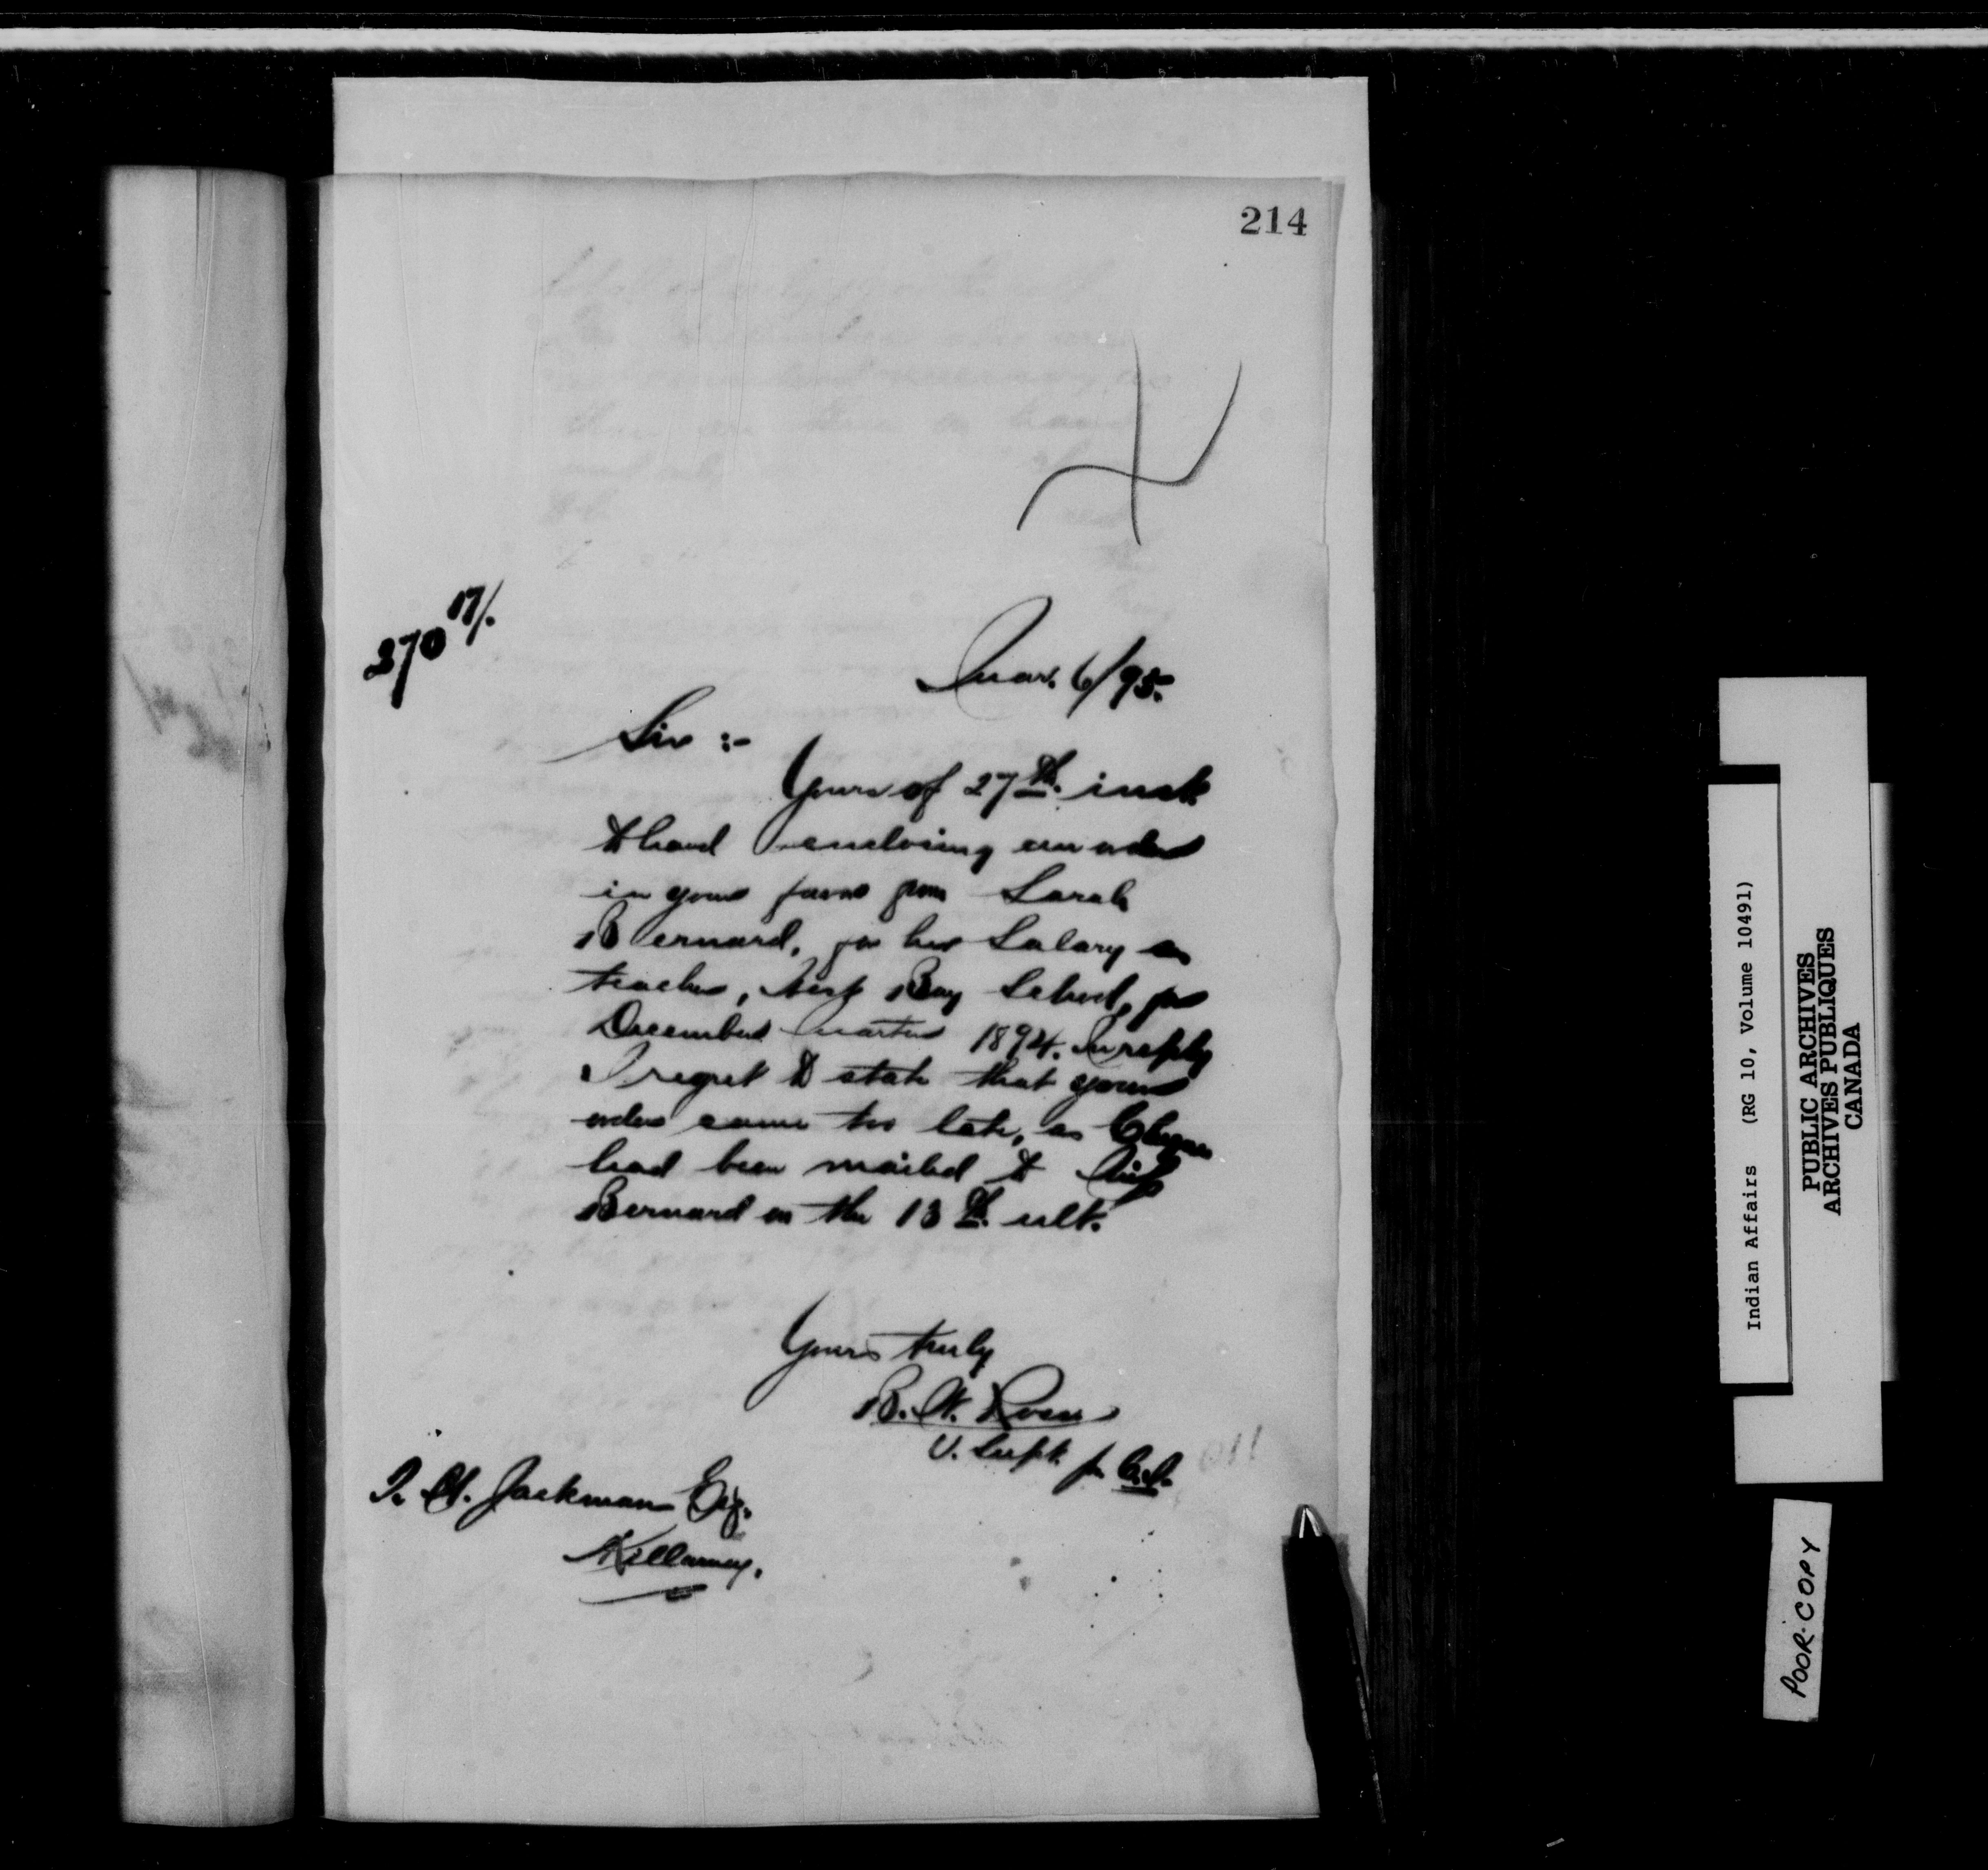 214
270 17/.
Mar. 6/95.
Sir :-
Yours of 27th. inst
to hand enclosing an order
in your favor from Sarah
Bernard, for her Salary as
teacher, West Bay School, for
December Quarter 1894. In reply
I regret to state that your
order came too late, as Cheque
had been mailed to Miss
Bernard on the 13th. ult.
Yours truly
B. W. Ross
V. Supt. for
Jackman Esq.
Killarney.
Indian Affairs (RG 10, Volume 10491)
PUBLIC ARCHIVES
ARCHIVES PUBLIQUES
CANADA
POOR COPY